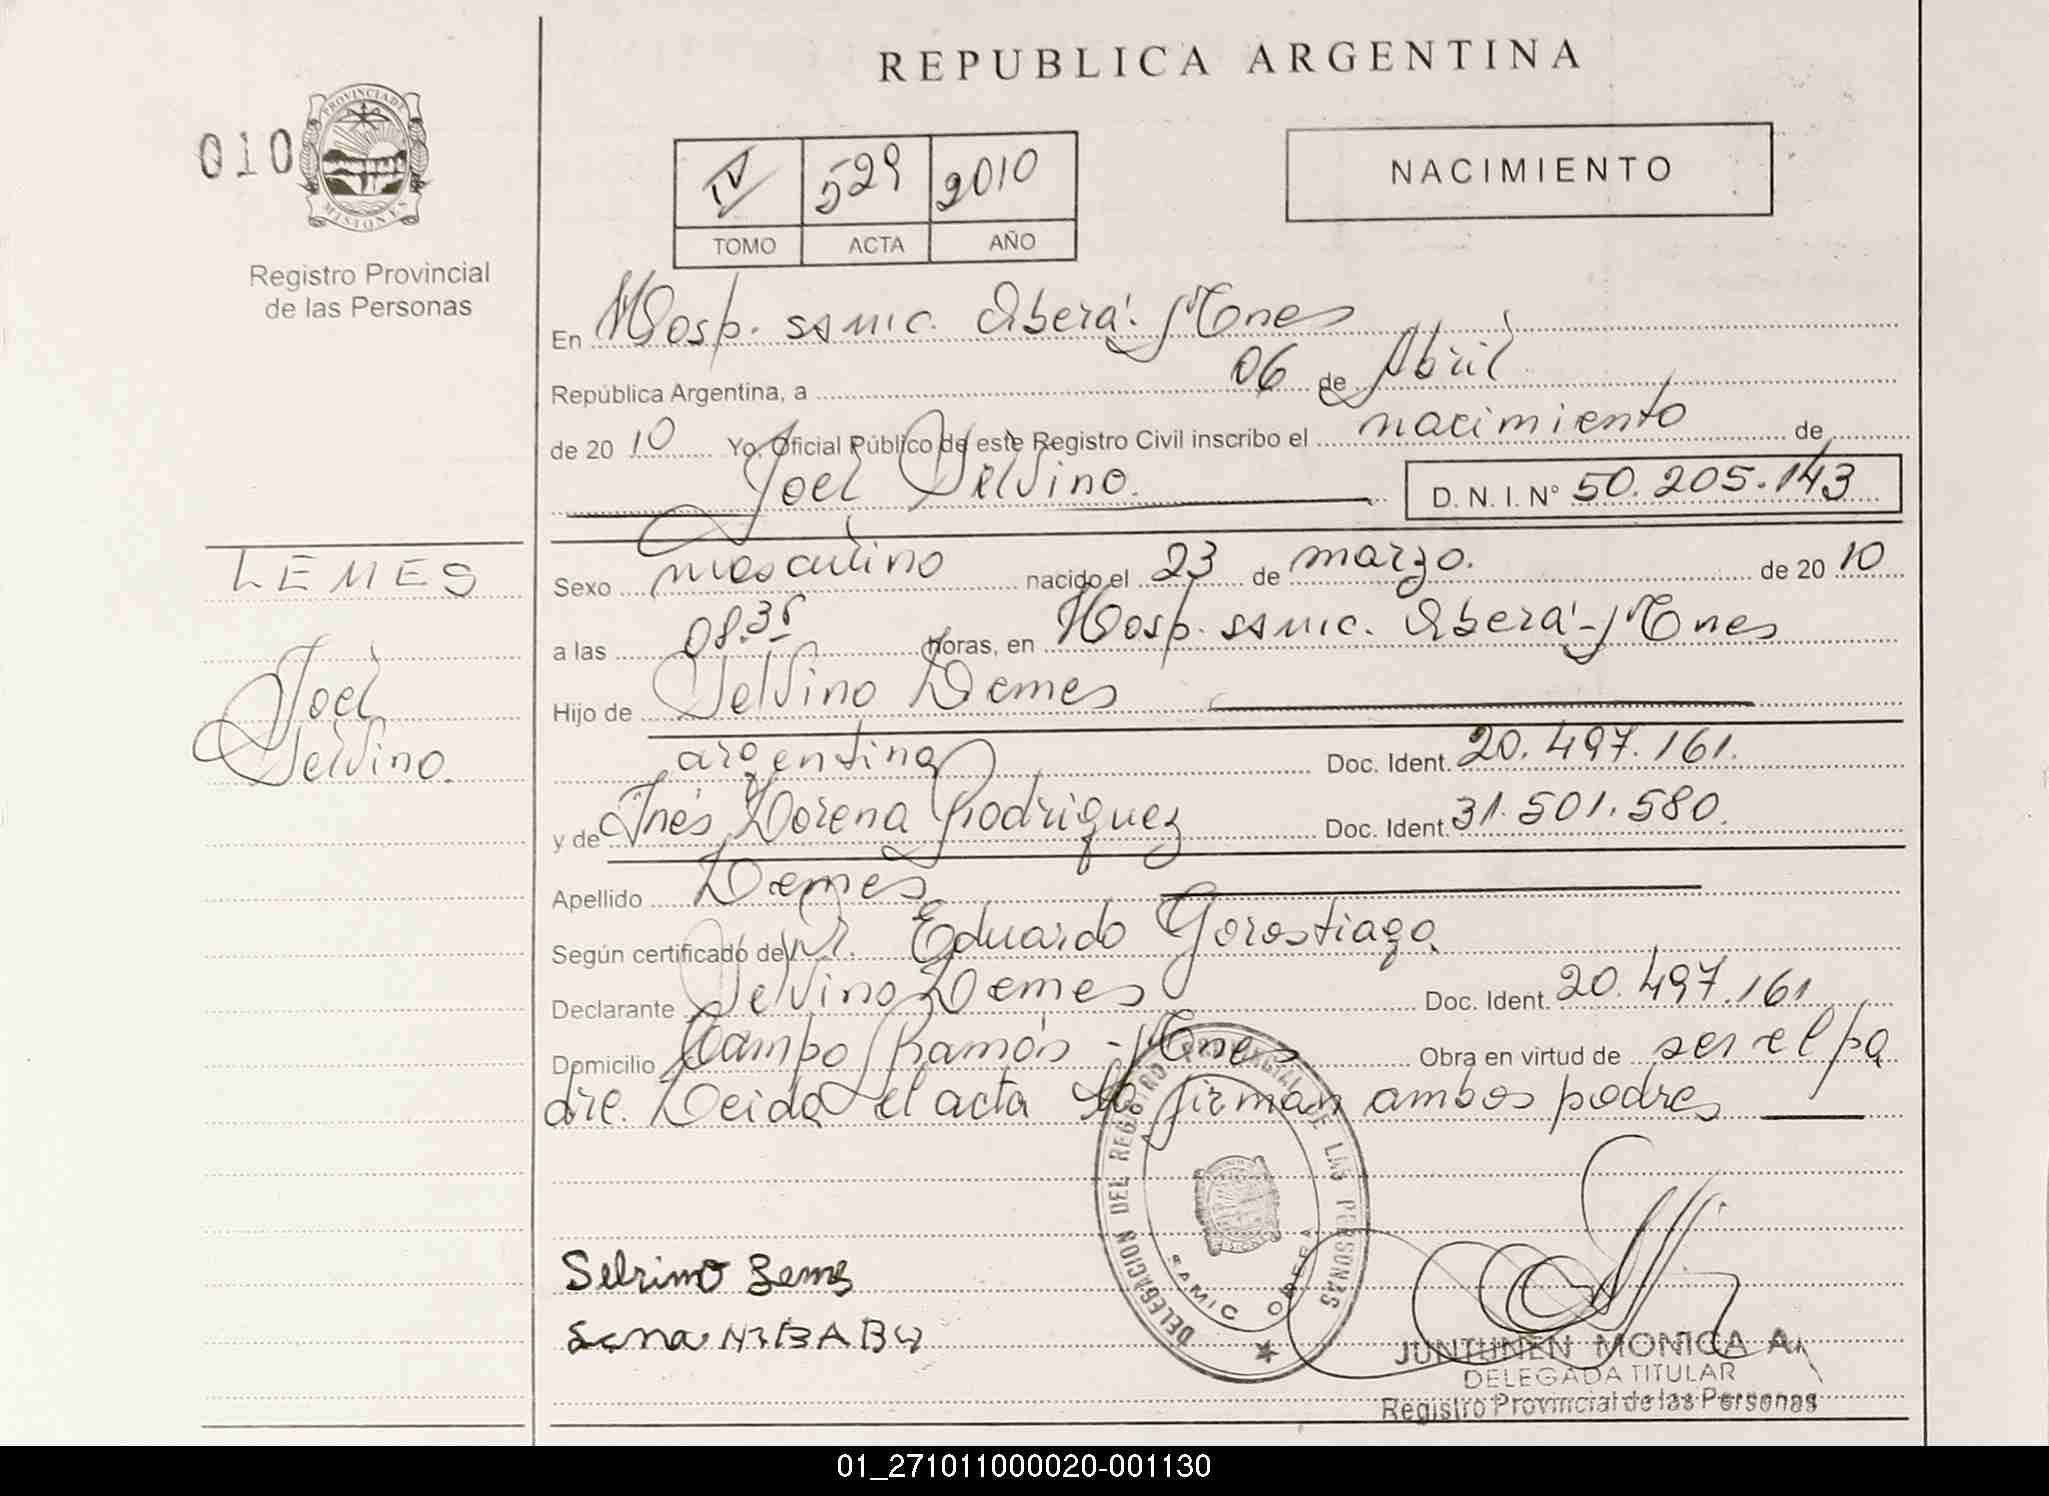 REPUBLICA ARGENTINA
010
PROVINCIA DE
MISIONES
Registro Provincial
de las Personas
IV 529 2010
TOMO ACTA AÑO
NACIMIENTO
En Hosp. SAMIC. Oberá. Mnes
República Argentina, a 06 de Abril
de 2010 Yo, Oficial Público de este Registro Civil inscribo el nacimiento de
Joel Selvino. D. N. I. N° 50.205.143
LEMES
Joel
Selvino.
Sexo masculino nacido el 23 de marzo. de 2010
a las 08.35 horas, en Hosp. SAMIC. Oberá-Mnes
Hijo de Selvino Lemes
argentina Doc. Ident. 20.497.161.
y de Inés Lorena Rodriguez Doc. Ident. 31.501.580.
Apellido Lemes
Según certificado de Dr. Eduardo Gorostiaga
Declarante Selvino Lemes Doc. Ident. 20.497.161
Domicilio Campo Ramón - Mnes Obra en virtud de ser el pa
dre. Leida el acta la firman ambos padres
DELEGACION DEL REGISTRO PROVINCIAL DE LAS PERSONAS
SAMIC OBERA
JUNTUNEN MONICA A.
DELEGADA TITULAR
Registro Provincial de las Personas
01_271011000020-001130